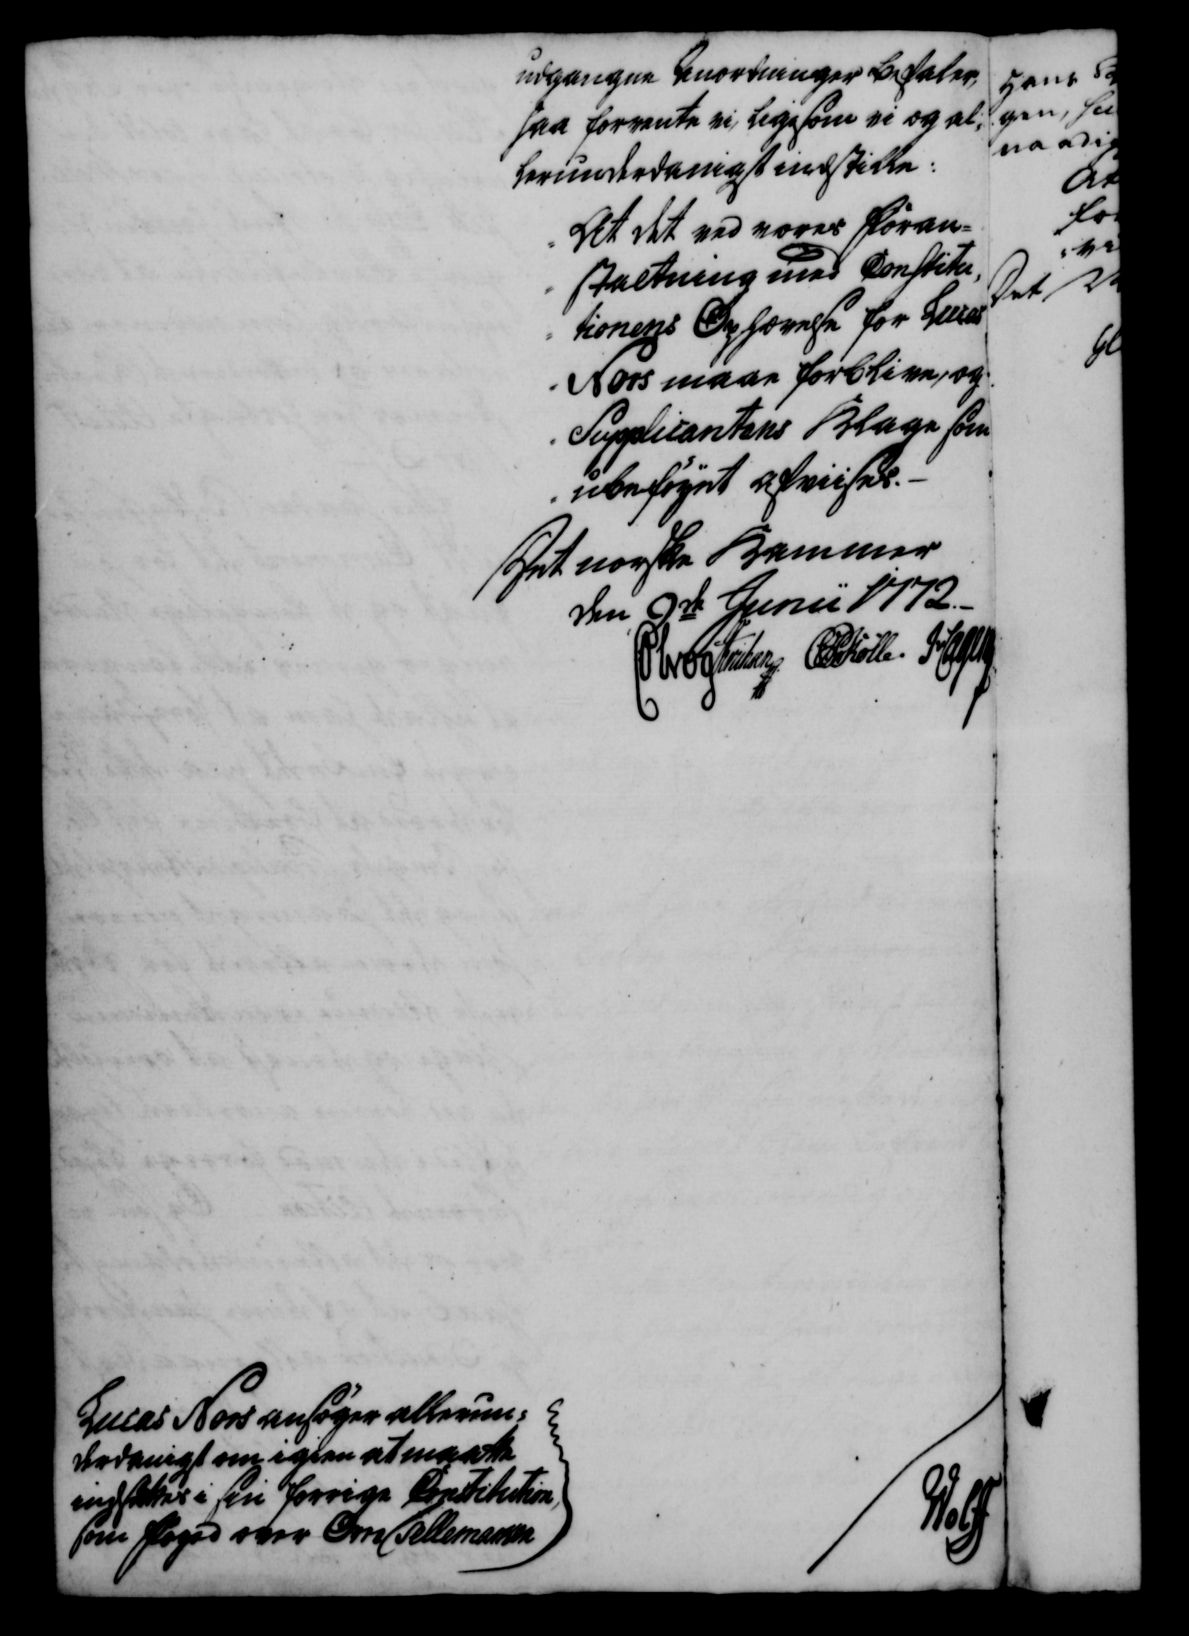 udgangne Anordninger befaler,
saa forvente vi, ligesom vi og al-
lerunderdanigst indstille:
At det ved vores Foran=
staltning med Constitu,
tionens Ophævelse for Lucas
Nors maae forblive, og
Supplicantens Klage som
ubeføyet afviises. -
Det norske Kammer
den 9de Junii 1772.-
Lucas Nors ansøger allerun-
derdanigst om igien at maatte
indsættes i sin forrige Constitution,
som Foged over Øvre Tellemarken
Wolff
Hans
gen,
At
Det